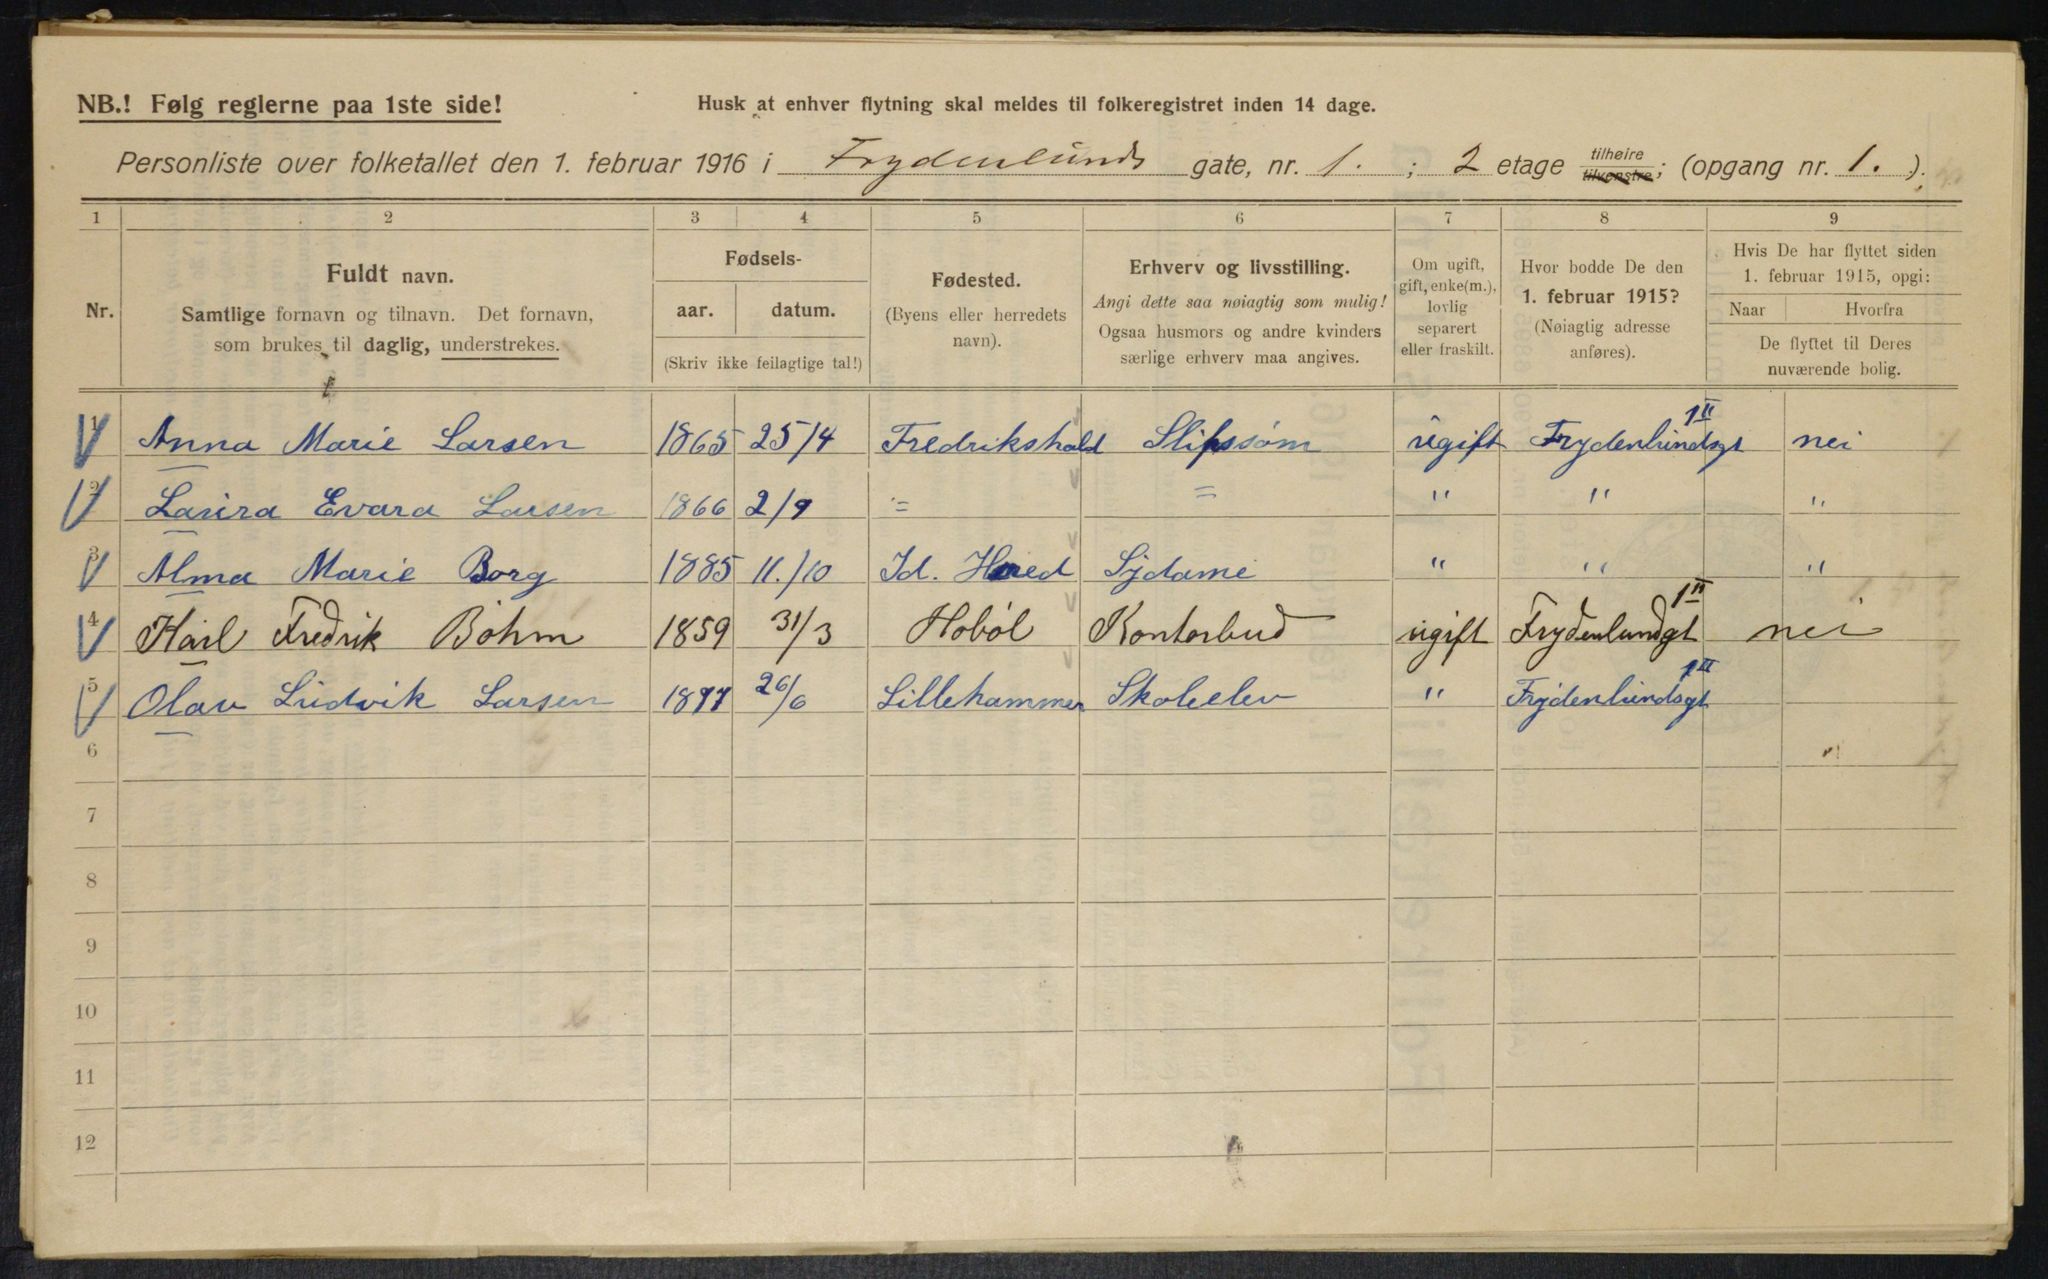 NB.! Følg reglerne paa 1ste side!
Husk at enhver flytning skal meldes til folkeregistret inden 14 dage.
Personliste over folketallet den 1. februar 1916 i Frydenlunds gate, nr. 1. ; 2 etage tilhøire tilvenstre; (opgang nr. 1. ).
1 2 3 4 5 6 7 8 9
Nr.
Fuldt navn.
Samtlige fornavn og tilnavn. Det fornavn,
som brukes til daglig, understrekes.
Fødsels-
aar. datum.
(Skriv ikke feilagtige tal!)
Fødested.
(Byens eller herredets
navn).
Erhverv og livsstilling.
Angi dette saa nøiagtig som mulig!
Ogsaa husmors og andre kvinders
særlige erhverv maa angives.
Om ugift,
gift, enke(m.),
lovlig
separert
eller fraskilt.
Hvor bodde De den
1. februar 1915?
(Nøiagtig adresse
anføres).
Hvis De har flyttet siden
1. februar 1915, opgi:
Naar Hvorfra
De flyttet til Deres
nuværende bolig.
1 Anna Marie Larsen 1865 25/4 Fredrikshald Slipssøm ugift Frydenlundsgt 1 II nei
2 Laura Evara Larsen 1866 2/9 = = " " "
3 Alma Marie Borg 1885 11./10 Id. Hered Sydame " " "
4 Karl Fredrik Böhm 1859 31/3 Hobøl Kontorbud ugift Frydenlundgt 1 II nei
5 Olav Ludvik Larsen 26/6 Lillehammer Skoleelev " Frydenlundsgt 1 II
6
7
8
9
10
11
12